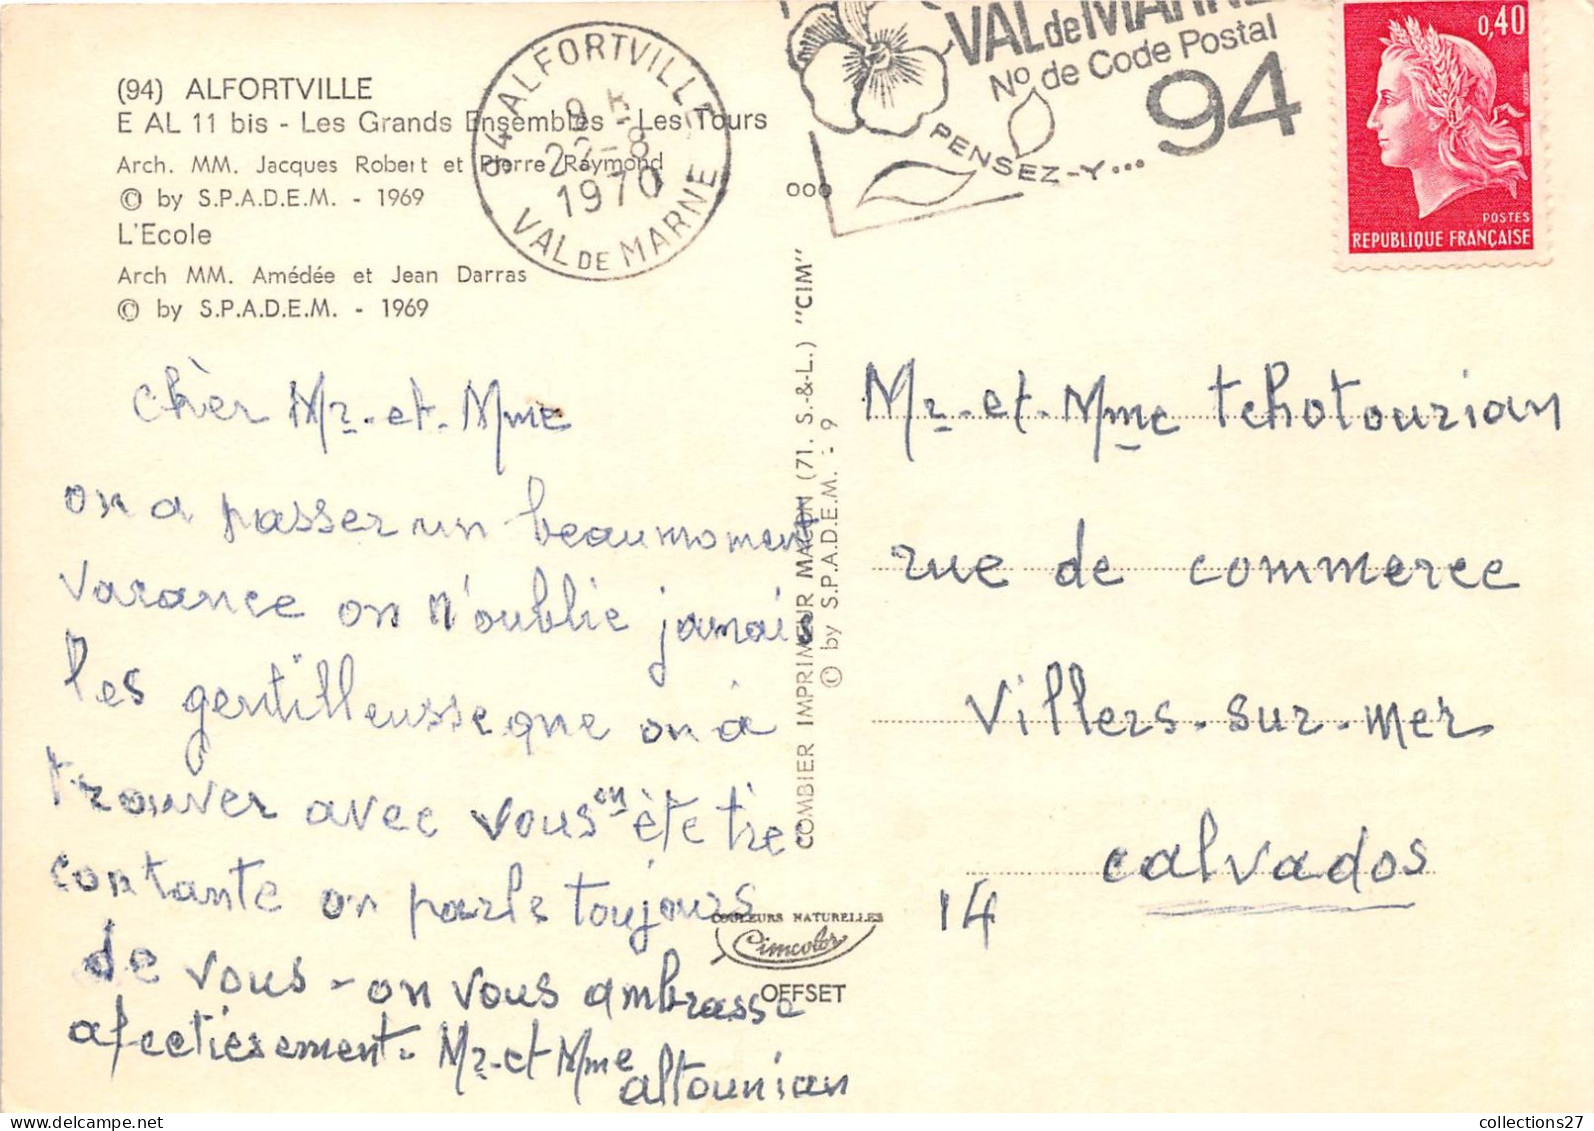 (94) ALFORTVILLE
E AL 11 bis - Les Grands Ensembles - Les Tours
Arch. MM. Jacques Robert et Pierre Raymond
© by S.P.A.D.E.M. - 1969
L'Ecole
Arch MM. Amédée et Jean Darras
© by S.P.A.D.E.M. - 1969
94 ALFORTVILLE
1970
VAL DE MARNE
VAL de MARNE
No de Code Postal
94
PENSEZ-Y...
0,40
POSTES
REPUBLIQUE FRANÇAISE
chèr Mr. et. Mme
on a passer un beau moment
varance on n'oublie jamais
les gentilleusse que on a
trouver avec vous on ète tre
contante on parle toujours
de vous - on vous ambrasse
afectiesement. Mr. et Mme
altounian
COMBIER IMPRIMEUR MACON (71. S.-&-L.) "CIM"
© by S.P.A.D.E.M. - 9
COULEURS NATURELLES
Cimcolor
OFFSET
Mr. et. Mme tchotourian
rue de commerce
Villers-sur-mer
14 calvados
collections27